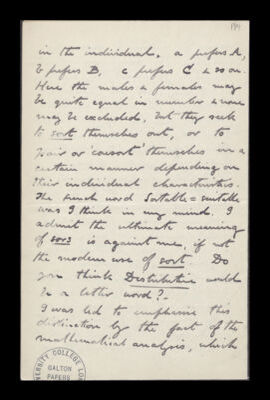 199
in the individual. a prefers A,
b prefers B, c prefers C & so on.
Here the males & females may
be quite equal in number & none
may be excluded, but they seek
to sort themselves out, or to
pair or 'consort' themselves in a
certain manner depending on
their individual characteristics.
The French word Sortable = suitable
was I think in my mind. I
admit the ultimate meaning
of sors is against me, if not
the modern use of sort. Do
you think Distributive would
be a better word?
I was led to emphasise this
distinction by the fact of the
mathematical analysis, which
UNIVERSITY COLLEGE LONDON
GALTON
PAPERS